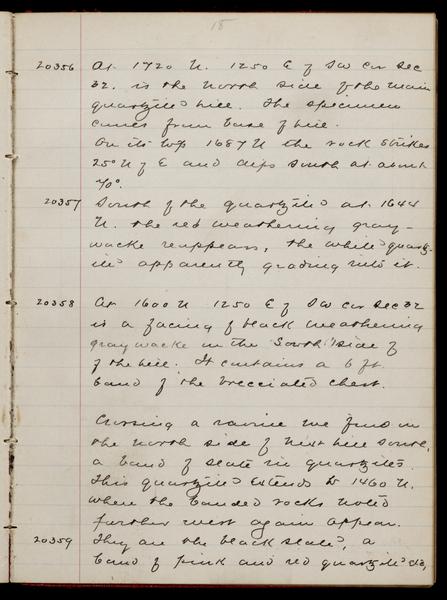 18
20356 At 1720 N. 1250 E of SW cor Sec
32. is the north side of the main
quartzite hill. The specimen
comes from base of hill.
On its top 1687 N the rock strikes
25° N of E and dips South at about
70°.
20357 South of the quartzite at 1644
N. the red weathering gray-
wacke reappears, the white quartz-
ite apparently grading into it.
20358 At 1600 N 1250 E of SW cor Sec 32
is a facing of black weathering
graywacke on the South side of
of the hill. It contains a 6 ft.
band of the brecciated chert.
Crossing a ravine we find on
the north side of next hill South,
a band of slate in quartzite.
This quartzite extends to 1460 N.
where the banded rocks noted
further west again appear.
20359 They are the black slate, a
band of pink and red quartzite etc,